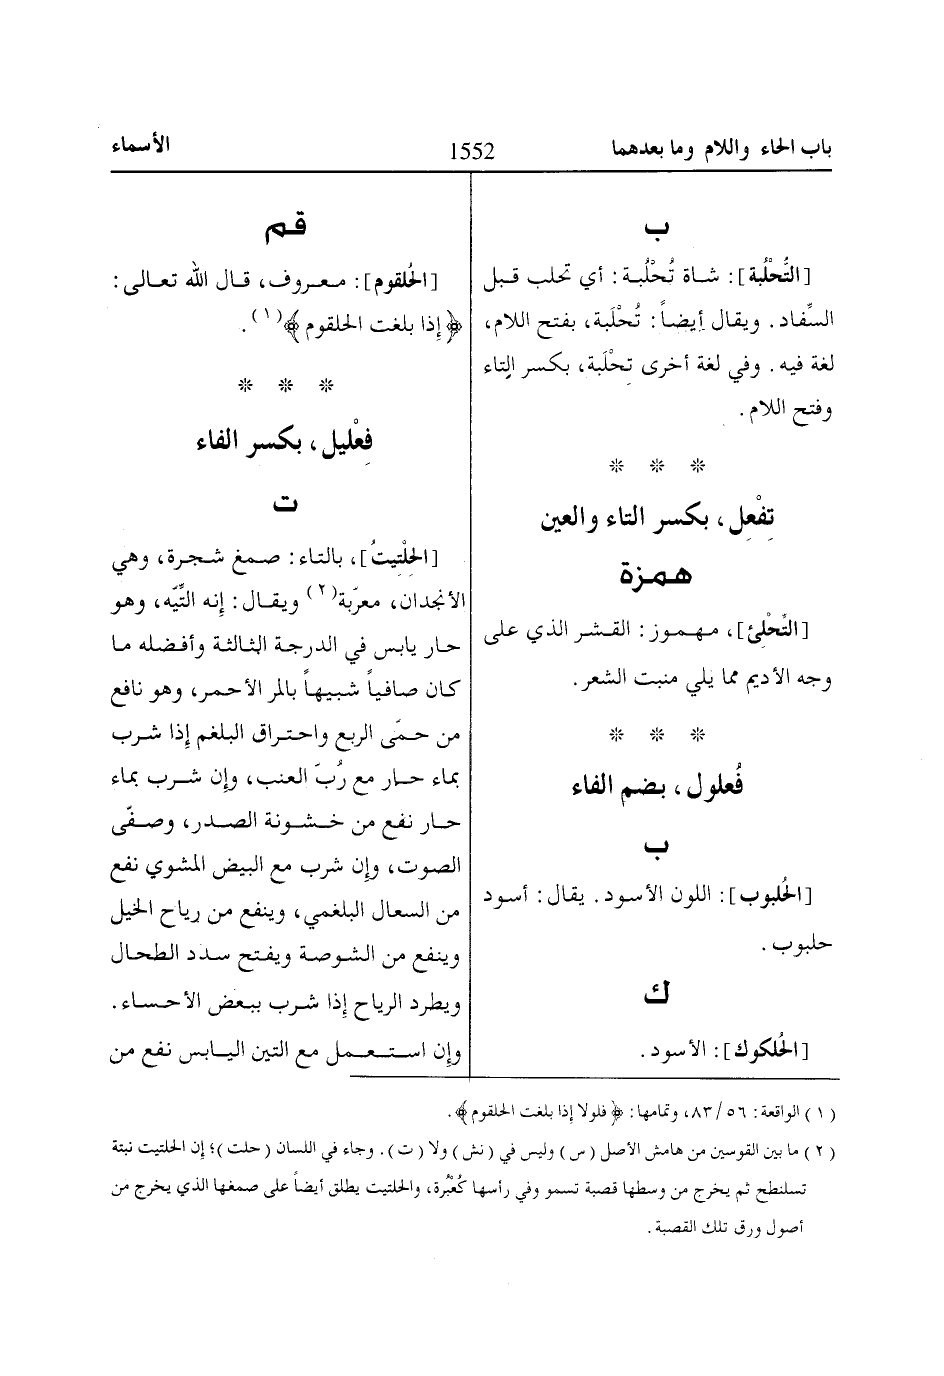 باب الحاء واللام وما بعدهما
1552
الأسماء
ب
[التُّحْلُبة]: شاة تُحْلُبة: أي تحلب قبل
السِّفاد. ويقال أيضاً: تُحْلَبة، بفتح اللام،
لغة فيه. وفي لغة أخرى تِحْلَبة، بكسر التاء
وفتح اللام.
* * *
تِفْعِل، بكسر التاء والعين
همزة
[التِّحْلِئ]، مهموز: القشر الذي على
وجه الأديم مما يلي منبت الشعر.
* * *
فُعلول، بضم الفاء
ب
[الحُلبوب]: اللون الأسود. يقال: أسود
حلبوب.
ك
[الحُلكوك]: الأسود.
قم
[الحُلقوم]: معروف، قال الله تعالى:
﴿إذا بلغت الحلقوم﴾(١).
* * *
فِعْليل، بكسر الفاء
ت
[الحِلْتيتُ]، بالتاء: صمغ شجرة، وهي
الأنجدان، معرّبة(٢) ويقال: إنه التِّيّه، وهو
حار يابس في الدرجة الثالثة وأفضله ما
كان صافياً شبيهاً بالمر الأحمر، وهو نافع
من حمّى الربع واحتراق البلغم إذا شرب
بماء حار مع رُبّ العنب، وإن شرب بماء
حار نفع من خشونة الصدر، وصفّى
الصوت، وإن شرب مع البيض المشوي نفع
من السعال البلغمي، وينفع من رياح الخيل
وينفع من الشوصة ويفتح سدد الطحال
ويطرد الرياح إذا شرب ببعض الأحساء.
وإن استعمل مع التين اليابس نفع من
(١) الواقعة: ٥٦/ ٨٣، وتمامها: ﴿فلولا إذا بلغت الحلقوم﴾.
(٢) ما بين القوسين من هامش الأصل (س) وليس في (نش) ولا (ت). وجاء في اللسان (حلت)؛ إن الحلتيت نبتة
تسلنطح ثم يخرج من وسطها قصبة تسمو وفي رأسها كُعْبُرة، والحلتيت يطلق أيضاً على صمغها الذي يخرج من
أصول ورق تلك القصبة.